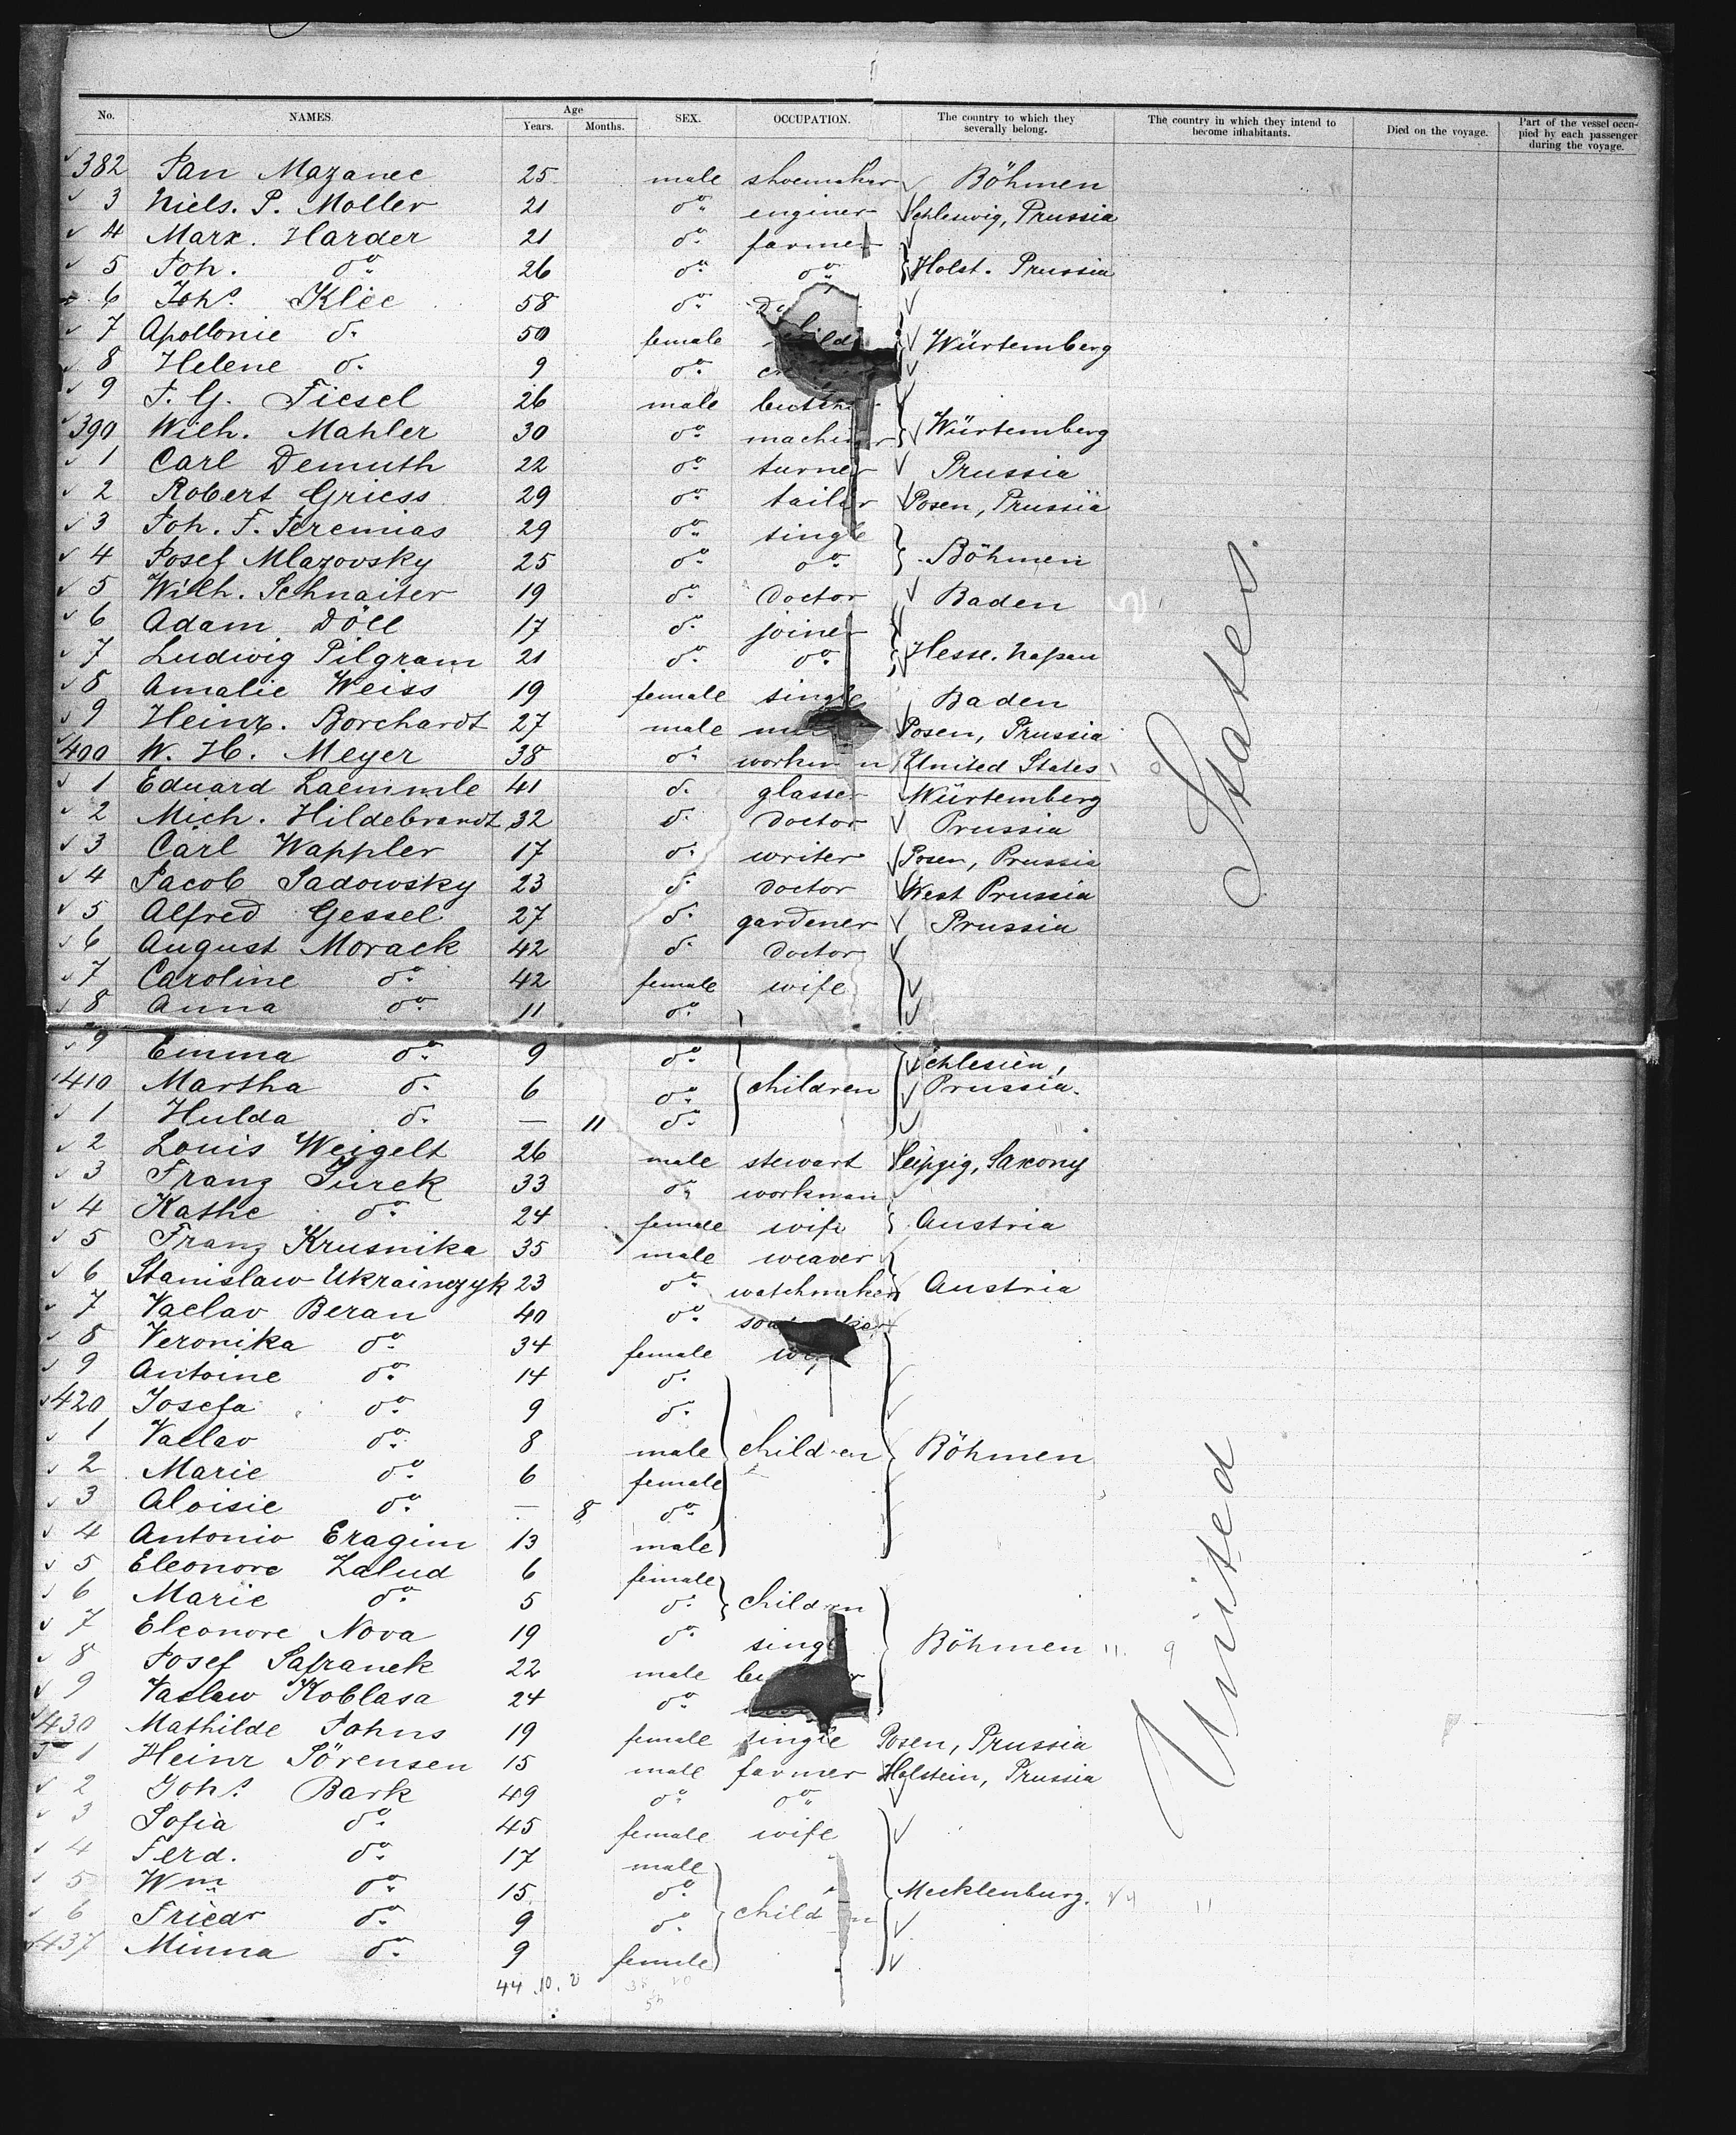 No. NAMES. Age Years. Months. SEX. OCCUPATION. The country to which they severally belong. The country in which they intend to become inhabitants. Died on the voyage. Part of the vessel occupied by each passenger during the voyage.
382 Jan Mazanec 25 male shoemaker Böhmen
3 Niels. P. Moller 21 do enginer Schleswig, Prussia
4 Marx. Harder 21 do farmer
5 Joh. do 26 do do Holst. Prussia
6 Johs. Klee 58 do
7 Apollonie do 50 female Würtemberg
8 Helene do 9 do
9 J. G. Fiesel 26 male
390 Wilh. Mahler 30 do Würtemberg
1 Carl Demuth 22 do turner Prussia
2 Robert Griess 29 do tailor Posen, Prussia
3 Joh. F. Jeremias 29 do single
4 Josef Mlazovsky 25 do do Böhmen
5 Wilh. Schnaiter 19 do Doctor Baden
6 Adam Döll 17 do joiner
7 Ludwig Pilgram 21 do do Hesse. Nassau
8 Amalie Weiss 19 female single Baden
9 Heinr. Borchardt 27 male Posen, Prussia
400 W. H. Meyer 38 do workman United States
1 Eduard Laemmle 41 do glasser Würtemberg
2 Mich. Hildebrandt 32 do Doctor Prussia
3 Carl Wappler 17 do writer Posen, Prussia
4 Jacob Sadowsky 23 do Doctor West Prussia
5 Alfred Gessel 27 do gardener Prussia
6 August Morack 42 do Doctor
7 Caroline do 42 female wife
8 Anna do 11 do
9 Emma do 9 do Schlesien,
410 Martha do 6 do children Prussia.
1 Hulda do — 11 do
2 Louis Weigelt 26 male stewart Leipzig, Saxony
3 Franz Jurek 33 do workman
4 Kathe do 24 female wife Austria
5 Franz Krusnika 35 male weaver
6 Stanislaw Ukrainczyk 23 do watchmaker Austria
7 Vaclav Beran 40 do
8 Veronika do 34 female wife
9 Antoine do 14 do
420 Josefa do 9 do
1 Vaclav do 8 male children Böhmen
2 Marie do 6 female
3 Aloisie do — 8 do
4 Antonio Eragim 13 male
5 Eleonore Zalud 6 female
6 Marie do 5 do children
7 Eleonore Nova 19 do single Böhmen
8 Josef Safranek 22 male
9 Vaclaw Koblasa 24 do
430 Mathilde Johns 19 female single Posen, Prussia
1 Heinr Sörensen 15 male farmer Holstein, Prussia
2 Johs. Bark 49 do do
3 Sofia do 45 female wife
4 Ferd. do 17 male
5 Wm do 15 do Mecklenburg.
6 Friedr do 9 do children
437 Minna do 9 female
44 10. 2
United States.